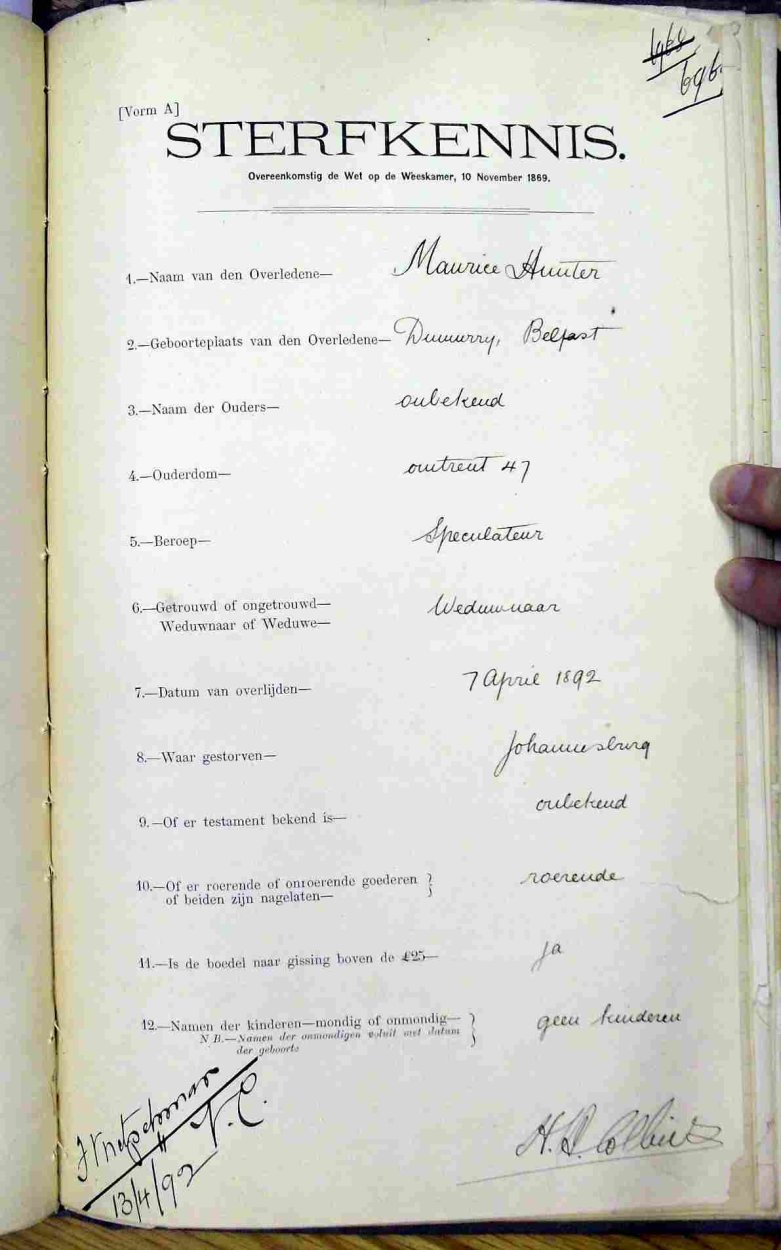 6968
696
[Vorm A]
STERFKENNIS.
Overeenkomstig de Wet op de Weeskamer, 10 November 1869.
1.—Naam van den Overledene— Maurice Hunter
2.—Geboorteplaats van den Overledene— Dunmurry, Belfast
3.—Naam der Ouders— onbekend
4.—Ouderdom— omtrent 47
5.—Beroep— Speculateur
6.—Getrouwd of ongetrouwd—
Weduwnaar of Weduwe— Weduwnaar
7.—Datum van overlijden— 7 April 1892
8.—Waar gestorven— Johannesburg
9.—Of er testament bekend is— onbekend
10.—Of er roerende of onroerende goederen } roerende
of beiden zijn nagelaten—
11.—Is de boedel naar gissing boven de £25— Ja
12.—Namen der kinderen—mondig of onmondig— } geen kinderen
N B.—Namen der onmondigen voluit met datum
der geboorte
H.
13/4/92